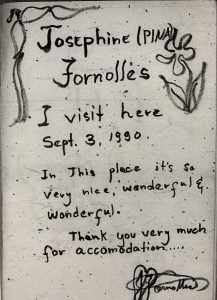 Josephine (PINA)
Fornolles
I visit here
Sept. 3, 1990.
In This place it's so
very nice, wanderful &
wonderful.
Thank you very much
for accomodation....
JFornolles